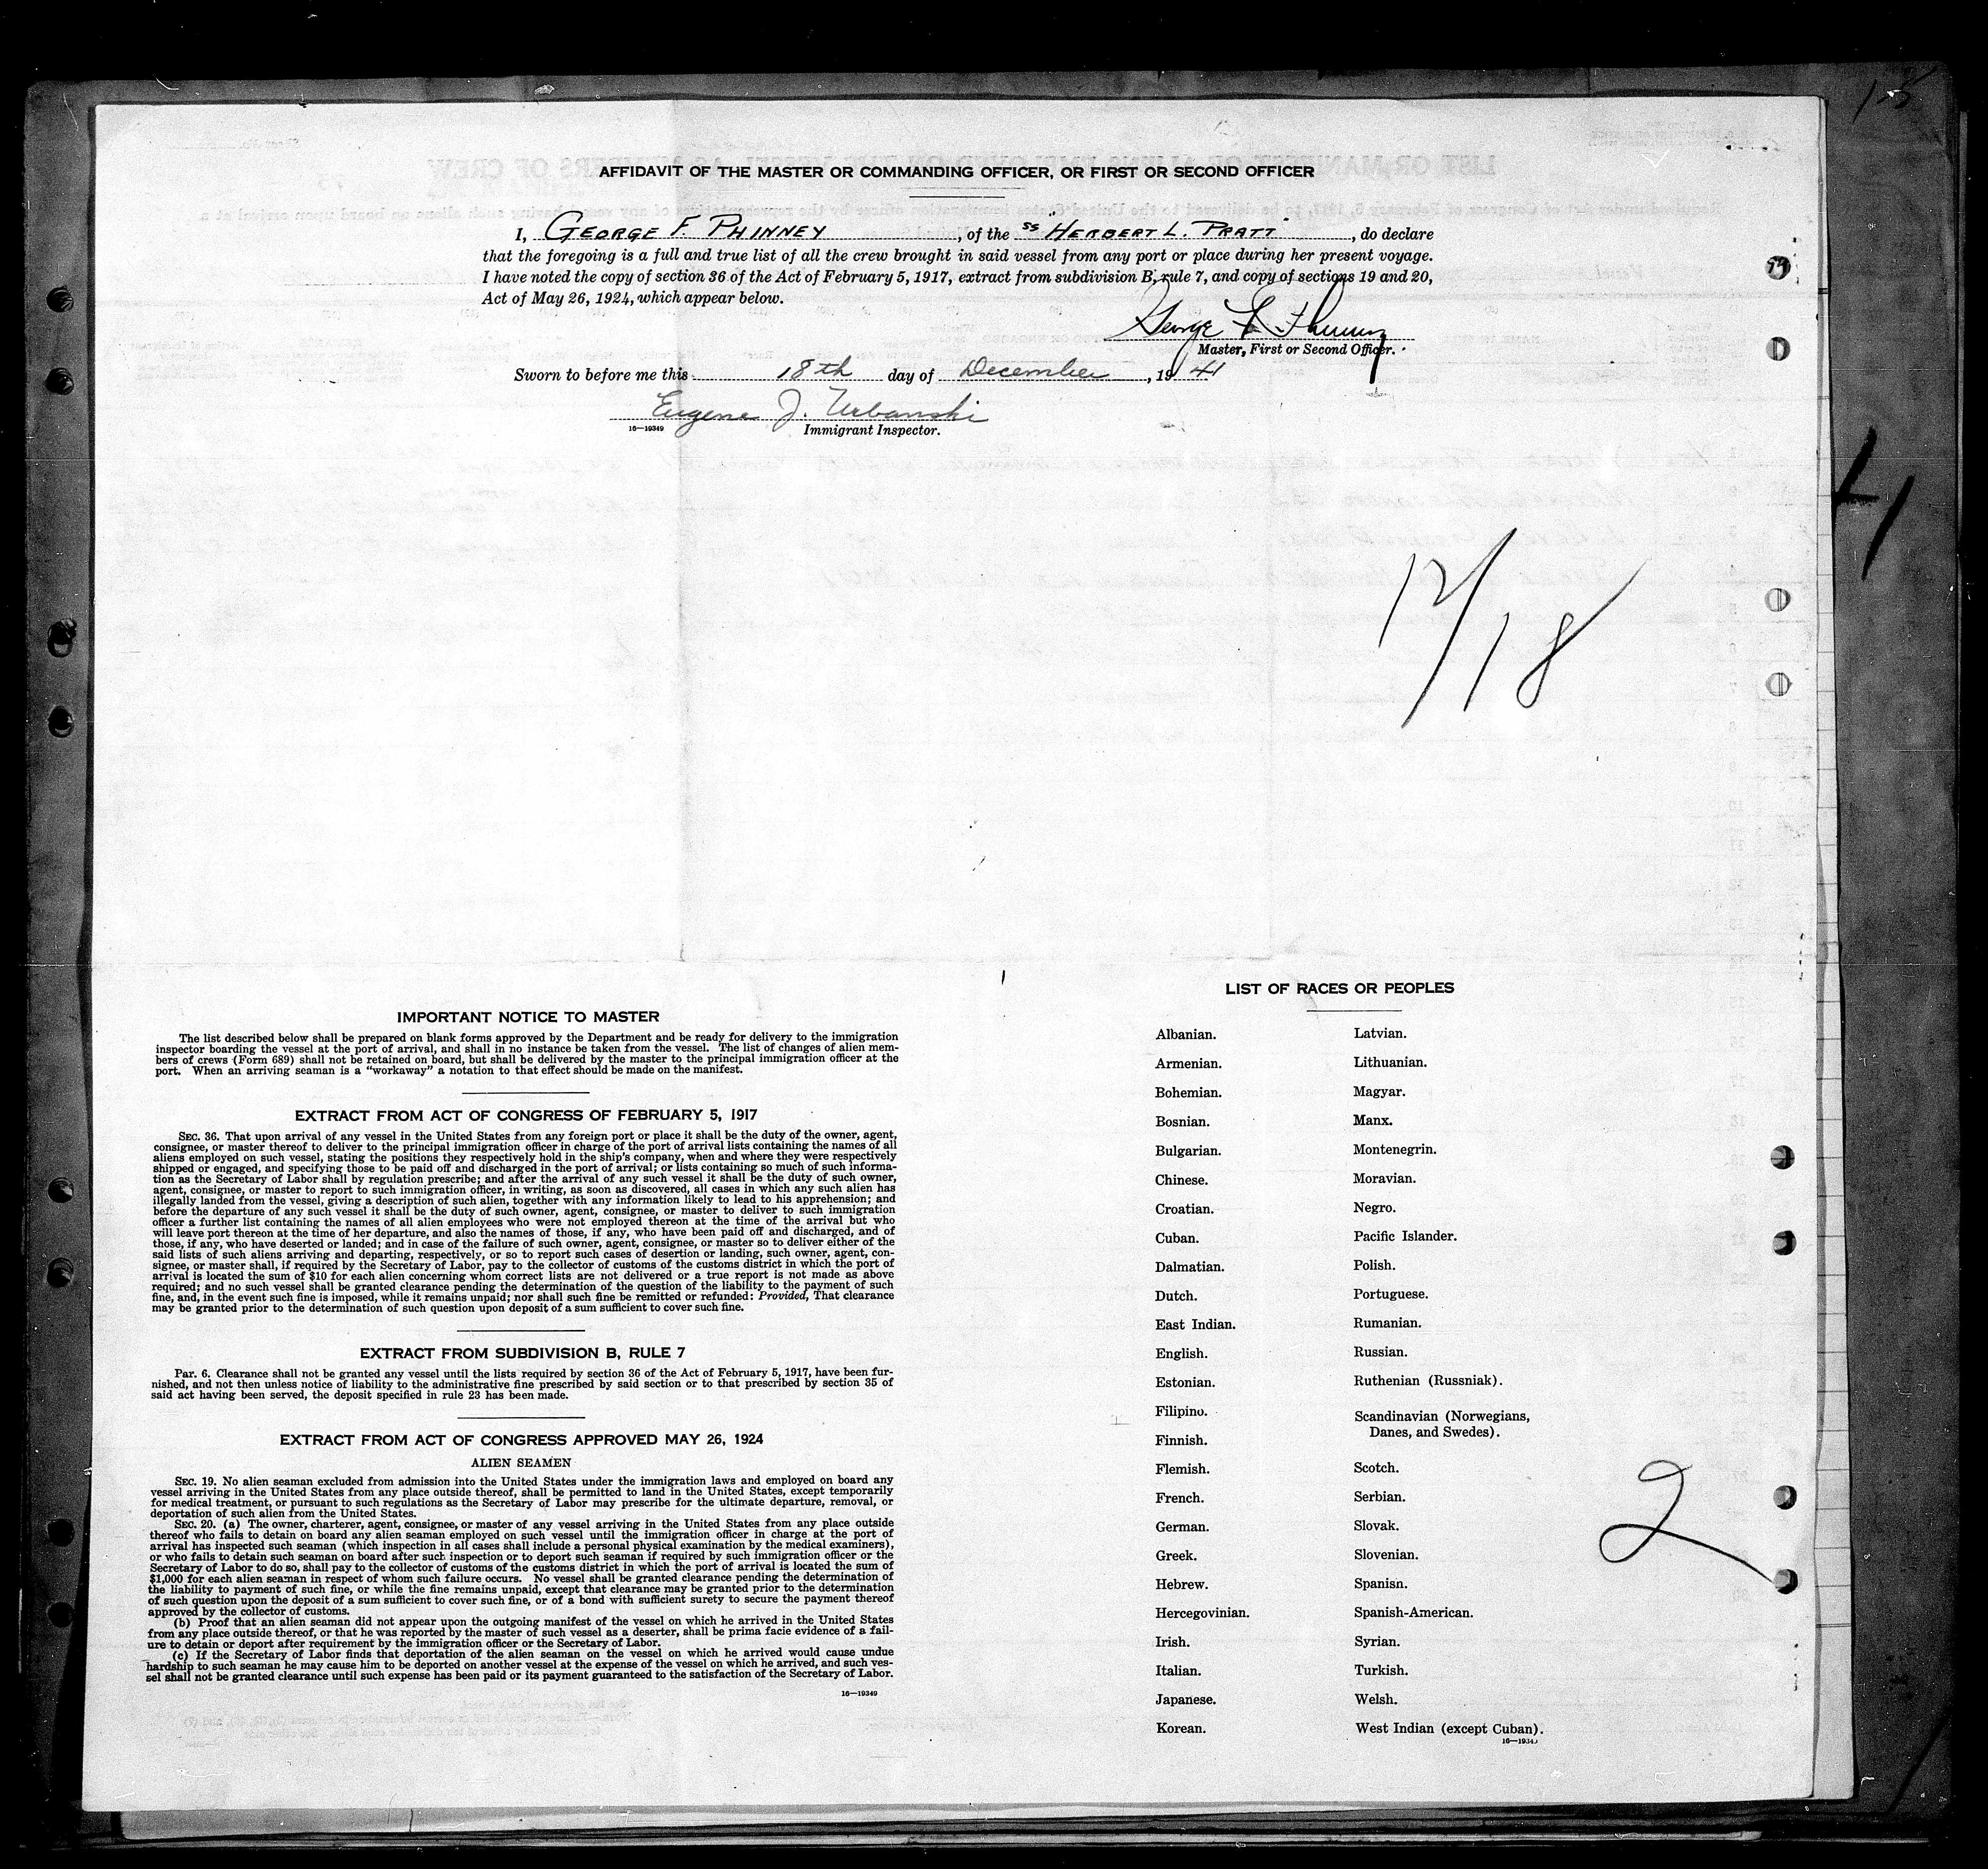 AFFIDAVIT OF THE MASTER OR COMMANDING OFFICER, OR FIRST OR SECOND OFFICER
I, GEORGE F. PHINNEY, of the SS HERBERT L. PRATT, do declare
that the foregoing is a full and true list of all the crew brought in said vessel from any port or place during her present voyage.
I have noted the copy of section 36 of the Act of February 5, 1917, extract from subdivision B, rule 7, and copy of sections 19 and 20,
Act of May 26, 1924, which appear below.
George F. Phinney
Master, First or Second Officer.
Sworn to before me this 18th day of December, 1941
Eugene J. Urbanski
16—19349 Immigrant Inspector.
12/18
IMPORTANT NOTICE TO MASTER
The list described below shall be prepared on blank forms approved by the Department and be ready for delivery to the immigration
inspector boarding the vessel at the port of arrival, and shall in no instance be taken from the vessel. The list of changes of alien mem-
bers of crews (Form 689) shall not be retained on board, but shall be delivered by the master to the principal immigration officer at the
port. When an arriving seaman is a "workaway" a notation to that effect should be made on the manifest.
EXTRACT FROM ACT OF CONGRESS OF FEBRUARY 5, 1917
SEC. 36. That upon arrival of any vessel in the United States from any foreign port or place it shall be the duty of the owner, agent,
consignee, or master thereof to deliver to the principal immigration officer in charge of the port of arrival lists containing the names of all
aliens employed on such vessel, stating the positions they respectively hold in the ship's company, when and where they were respectively
shipped or engaged, and specifying those to be paid off and discharged in the port of arrival; or lists containing so much of such informa-
tion as the Secretary of Labor shall by regulation prescribe; and after the arrival of any such vessel it shall be the duty of such owner,
agent, consignee, or master to report to such immigration officer, in writing, as soon as discovered, all cases in which any such alien has
illegally landed from the vessel, giving a description of such alien, together with any information likely to lead to his apprehension; and
before the departure of any such vessel it shall be the duty of such owner, agent, consignee, or master to deliver to such immigration
officer a further list containing the names of all alien employees who were not employed thereon at the time of the arrival but who
will leave port thereon at the time of her departure, and also the names of those, if any, who have been paid off and discharged, and of
those, if any, who have deserted or landed; and in case of the failure of such owner, agent, consignee, or master so to deliver either of the
said lists of such aliens arriving and departing, respectively, or so to report such cases of desertion or landing, such owner, agent, con-
signee, or master shall, if required by the Secretary of Labor, pay to the collector of customs of the customs district in which the port of
arrival is located the sum of $10 for each alien concerning whom correct lists are not delivered or a true report is not made as above
required; and no such vessel shall be granted clearance pending the determination of the question of the liability to the payment of such
fine, and, in the event such fine is imposed, while it remains unpaid; nor shall such fine be remitted or refunded: Provided, That clearance
may be granted prior to the determination of such question upon deposit of a sum sufficient to cover such fine.
EXTRACT FROM SUBDIVISION B, RULE 7
PAR. 6. Clearance shall not be granted any vessel until the lists required by section 36 of the Act of February 5, 1917, have been fur-
nished, and not then unless notice of liability to the administrative fine prescribed by said section or to that prescribed by section 35 of
said act having been served, the deposit specified in rule 23 has been made.
EXTRACT FROM ACT OF CONGRESS APPROVED MAY 26, 1924
ALIEN SEAMEN
SEC. 19. No alien seaman excluded from admission into the United States under the immigration laws and employed on board any
vessel arriving in the United States from any place outside thereof, shall be permitted to land in the United States, except temporarily
for medical treatment, or pursuant to such regulations as the Secretary of Labor may prescribe for the ultimate departure, removal, or
deportation of such alien from the United States.
SEC. 20. (a) The owner, charterer, agent, consignee, or master of any vessel arriving in the United States from any place outside
thereof who fails to detain on board any alien seaman employed on such vessel until the immigration officer in charge at the port of
arrival has inspected such seaman (which inspection in all cases shall include a personal physical examination by the medical examiners),
or who fails to detain such seaman on board after such inspection or to deport such seaman if required by such immigration officer or the
Secretary of Labor to do so, shall pay to the collector of customs of the customs district in which the port of arrival is located the sum of
$1,000 for each alien seaman in respect of whom such failure occurs. No vessel shall be granted clearance pending the determination of
the liability to payment of such fine, or while the fine remains unpaid, except that clearance may be granted prior to the determination
of such question upon the deposit of a sum sufficient to cover such fine, or of a bond with sufficient surety to secure the payment thereof
approved by the collector of customs.
(b) Proof that an alien seaman did not appear upon the outgoing manifest of the vessel on which he arrived in the United States
from any place outside thereof, or that he was reported by the master of such vessel as a deserter, shall be prima facie evidence of a fail-
ure to detain or deport after requirement by the immigration officer or the Secretary of Labor.
(c) If the Secretary of Labor finds that deportation of the alien seaman on the vessel on which he arrived would cause undue
hardship to such seaman he may cause him to be deported on another vessel at the expense of the vessel on which he arrived, and such ves-
sel shall not be granted clearance until such expense has been paid or its payment guaranteed to the satisfaction of the Secretary of Labor.
16—19349
LIST OF RACES OR PEOPLES
Albanian.
Armenian.
Bohemian.
Bosnian.
Bulgarian.
Chinese.
Croatian.
Cuban.
Dalmatian.
Dutch.
East Indian.
English.
Estonian.
Filipino.
Finnish.
Flemish.
French.
German.
Greek.
Hebrew.
Hercegovinian.
Irish.
Italian.
Japanese.
Korean.
Latvian.
Lithuanian.
Magyar.
Manx.
Montenegrin.
Moravian.
Negro.
Pacific Islander.
Polish.
Portuguese.
Rumanian.
Russian.
Ruthenian (Russniak).
Scandinavian (Norwegians,
Danes, and Swedes).
Scotch.
Serbian.
Slovak.
Slovenian.
Spanisn.
Spanish-American.
Syrian.
Turkish.
Welsh.
West Indian (except Cuban).
2